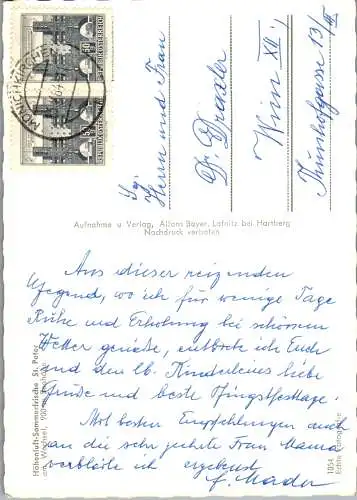 MÖNICHKIRCHEN
50
REPUBLIK ÖSTERREICH
Sg.
Herrn und Frau
Dr. Drexler
Wien XII.
13/III
Aufnahme u. Verlag, Alfons Bayer, Lafnitz bei Hartberg
Nachdruck verboten
Aus dieser reizenden
Gegend, wo ich für wenige Tage
Ruhe und Erholung bei schönem
Wetter genieße, entbiete ich Euch
und den lb. Kinderleins liebe
Grüße und beste Pfingstfesttage.
Mit besten Empfehlungen auch
an die sehr geehrte Frau Mama
verbleibe ich ergebenst
F. Mader
Höhenluft-Sommerfrische St. Peter
am Wechsel, 950 m Seehöhe
1054
Echte Fotographie